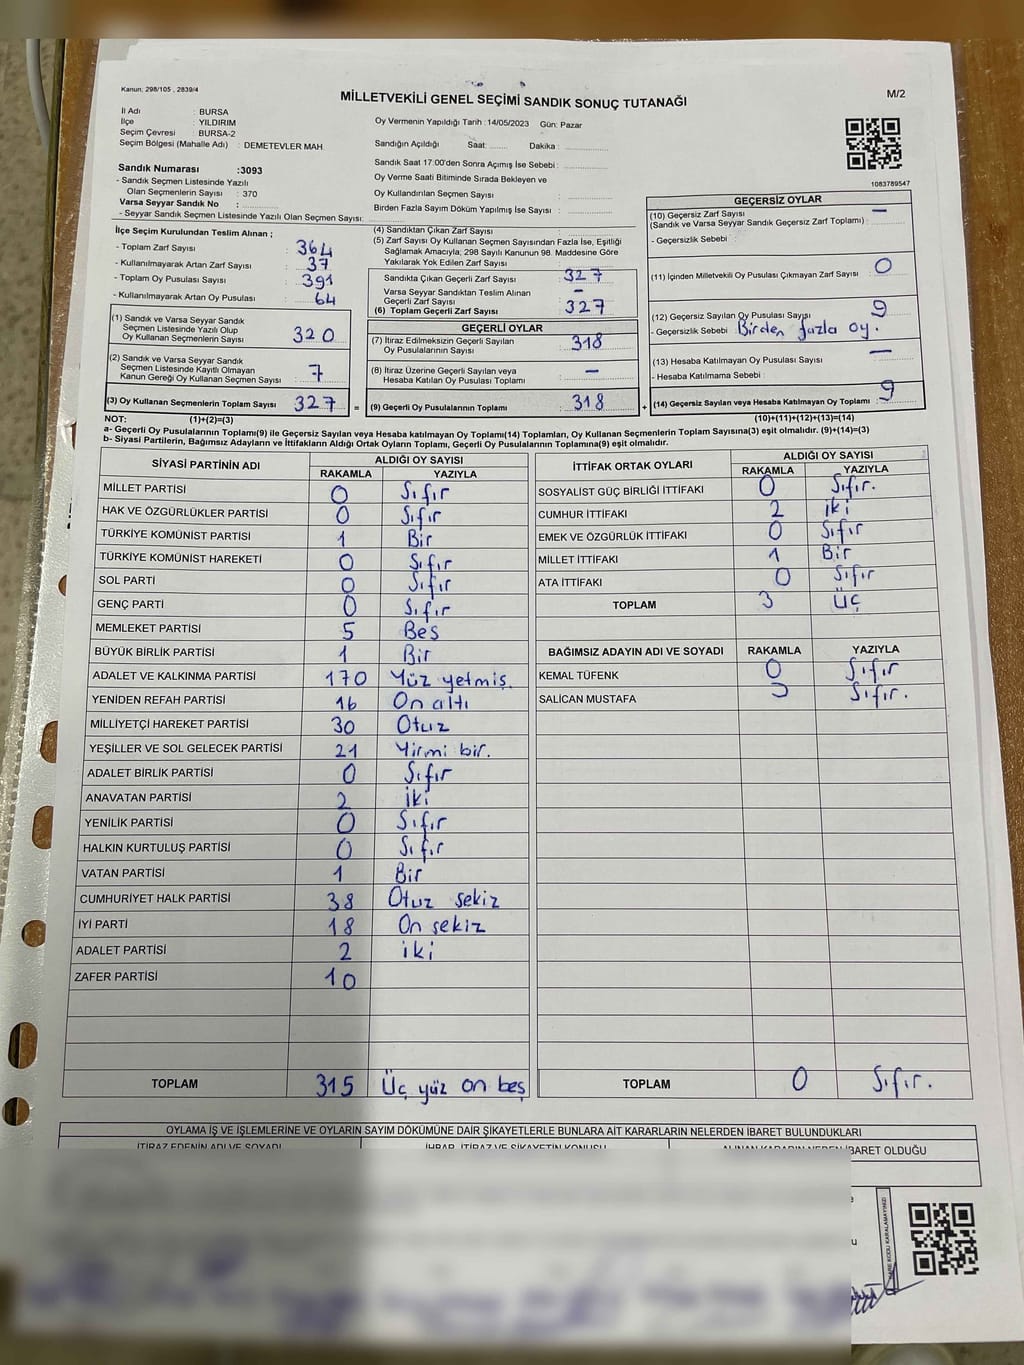 Kanun, 298/105 , 2839/4
MİLLETVEKİLİ GENEL SEÇİMİ SANDIK SONUÇ TUTANAĞI
M/2
İl Adı : BURSA
İlçe : YILDIRIM
Seçim Çevresi : BURSA-2
Seçim Bölgesi (Mahalle Adı) : DEMETEVLER MAH.
Oy Vermenin Yapıldığı Tarih : 14/05/2023 Gün: Pazar
Sandığın Açıldığı Saat: ........ Dakika : ....................
Sandık Saat 17:00'den Sonra Açımış İse Sebebi : ....................
Oy Verme Saati Bitiminde Sırada Bekleyen ve
Oy Kullandırılan Seçmen Sayısı : ....................
Birden Fazla Sayım Döküm Yapılmış İse Sayısı : ....................
1083789547
Sandık Numarası :3093
- Sandık Seçmen Listesinde Yazılı
Olan Seçmenlerin Sayısı : 370
Varsa Seyyar Sandık No :
- Seyyar Sandık Seçmen Listesinde Yazılı Olan Seçmen Sayısı: ..........
İlçe Seçim Kurulundan Teslim Alınan ;
- Toplam Zarf Sayısı : 364
- Kullanılmayarak Artan Zarf Sayısı : 37
- Toplam Oy Pusulası Sayısı : 391
- Kullanılmayarak Artan Oy Pusulası : 64
(1) Sandık ve Varsa Seyyar Sandık
Seçmen Listesinde Yazılı Olup
Oy Kullanan Seçmen Sayısı 320
(2) Sandık ve Varsa Seyyar Sandık
Seçmen Listesinde Kayıtlı Olmayan
Kanun Gereği Oy Kullanan Seçmen Sayısı 7
(3) Oy Kullanan Seçmenlerin Toplam Sayısı 327
(4) Sandıktan Çıkan Zarf Sayısı :
(5) Zarf Sayısı Oy Kullanan Seçmen Sayısından Fazla İse, Eşitliği
Sağlamak Amacıyla, 298 Sayılı Kanunun 98. Maddesine Göre
Yakılarak Yok Edilen Zarf Sayısı :
Sandıkta Çıkan Geçerli Zarf Sayısı : 327
Varsa Seyyar Sandıktan Teslim Alınan
Geçerli Zarf Sayısı : –
(6) Toplam Geçerli Zarf Sayısı : 327
GEÇERLİ OYLAR
(7) İtiraz Edilmeksizin Geçerli Sayılan
Oy Pusulalarının Sayısı : 318
(8) İtiraz Üzerine Geçerli Sayılan veya
Hesaba Katılan Oy Pusulası Toplamı : –
= (9) Geçerli Oy Pusulalarının Toplamı : 318
GEÇERSİZ OYLAR
(10) Geçersiz Zarf Sayısı
(Sandık ve Varsa Seyyar Sandık Geçersiz Zarf Toplamı) : –
- Geçersizlik Sebebi :
(11) İçinden Milletvekili Oy Pusulası Çıkmayan Zarf Sayısı : 0
(12) Geçersiz Sayılan Oy Pusulası Sayısı : 9
- Geçersizlik Sebebi : Birden fazla oy.
(13) Hesaba Katılmayan Oy Pusulası Sayısı : –
- Hesaba Katılmama Sebebi :
+ (14) Geçersiz Sayılan veya Hesaba Katılmayan Oy Toplamı : 9
NOT: (1)+(2)=(3) (10)+(11)+(12)+(13)=(14)
a- Geçerli Oy Pusulalarının Toplamı(9) ile Geçersiz Sayılan veya Hesaba katılmayan Oy Toplamı(14) Toplamları, Oy Kullanan Seçmenlerin Toplam Sayısına(3) eşit olmalıdır. (9)+(14)=(3)
b- Siyasi Partilerin, Bağımsız Adayların ve İttifakların Aldığı Ortak Oyların Toplamı, Geçerli Oy Pusulalarının Toplamına(9) eşit olmalıdır.
SİYASİ PARTİNİN ADI ALDIĞI OY SAYISI
RAKAMLA YAZIYLA
MİLLET PARTİSİ 0 Sıfır
HAK VE ÖZGÜRLÜKLER PARTİSİ 0 Sıfır
TÜRKİYE KOMÜNİST PARTİSİ 1 Bir
TÜRKİYE KOMÜNİST HAREKETİ 0 Sıfır
SOL PARTİ 0 Sıfır
GENÇ PARTİ 0 Sıfır
MEMLEKET PARTİSİ 5 Bes
BÜYÜK BİRLİK PARTİSİ 1 Bir
ADALET VE KALKINMA PARTİSİ 170 Yüz yetmiş.
YENİDEN REFAH PARTİSİ 16 On altı
MİLLİYETÇİ HAREKET PARTİSİ 30 Otuz
YEŞİLLER VE SOL GELECEK PARTİSİ 21 Yirmi bir.
ADALET BİRLİK PARTİSİ 0 Sıfır
ANAVATAN PARTİSİ 2 iki
YENİLİK PARTİSİ 0 Sıfır
HALKIN KURTULUŞ PARTİSİ 0 Sıfır
VATAN PARTİSİ 1 Bir
CUMHURİYET HALK PARTİSİ 38 Otuz sekiz
İYİ PARTİ 18 On sekiz
ADALET PARTİSİ 2 iki
ZAFER PARTİSİ 10
TOPLAM 315 Üç yüz on beş
İTTİFAK ORTAK OYLARI ALDIĞI OY SAYISI
RAKAMLA YAZIYLA
SOSYALİST GÜÇ BİRLİĞİ İTTİFAKI 0 Sıfır.
CUMHUR İTTİFAKI 2 iki
EMEK VE ÖZGÜRLÜK İTTİFAKI 0 Sıfır
MİLLET İTTİFAKI 1 Bir
ATA İTTİFAKI 0 Sıfır
TOPLAM 3 Üç
BAĞIMSIZ ADAYIN ADI VE SOYADI RAKAMLA YAZIYLA
KEMAL TÜFENK 0 Sıfır
SALİCAN MUSTAFA Sıfır.
TOPLAM 0 Sıfır.
OYLAMA İŞ VE İŞLEMLERİNE VE OYLARIN SAYIM DÖKÜMÜNE DAİR ŞİKAYETLERLE BUNLARA AİT KARARLARIN NELERDEN İBARET BULUNDUKLARI
İTİRAZ EDENİN ADI VE SOYADI İHBAR, İTİRAZ VE ŞİKAYETİN KONUSU ALINAN KARARIN NEDEN İBARET OLDUĞU
KARE KODU KARALAMAYINIZ!